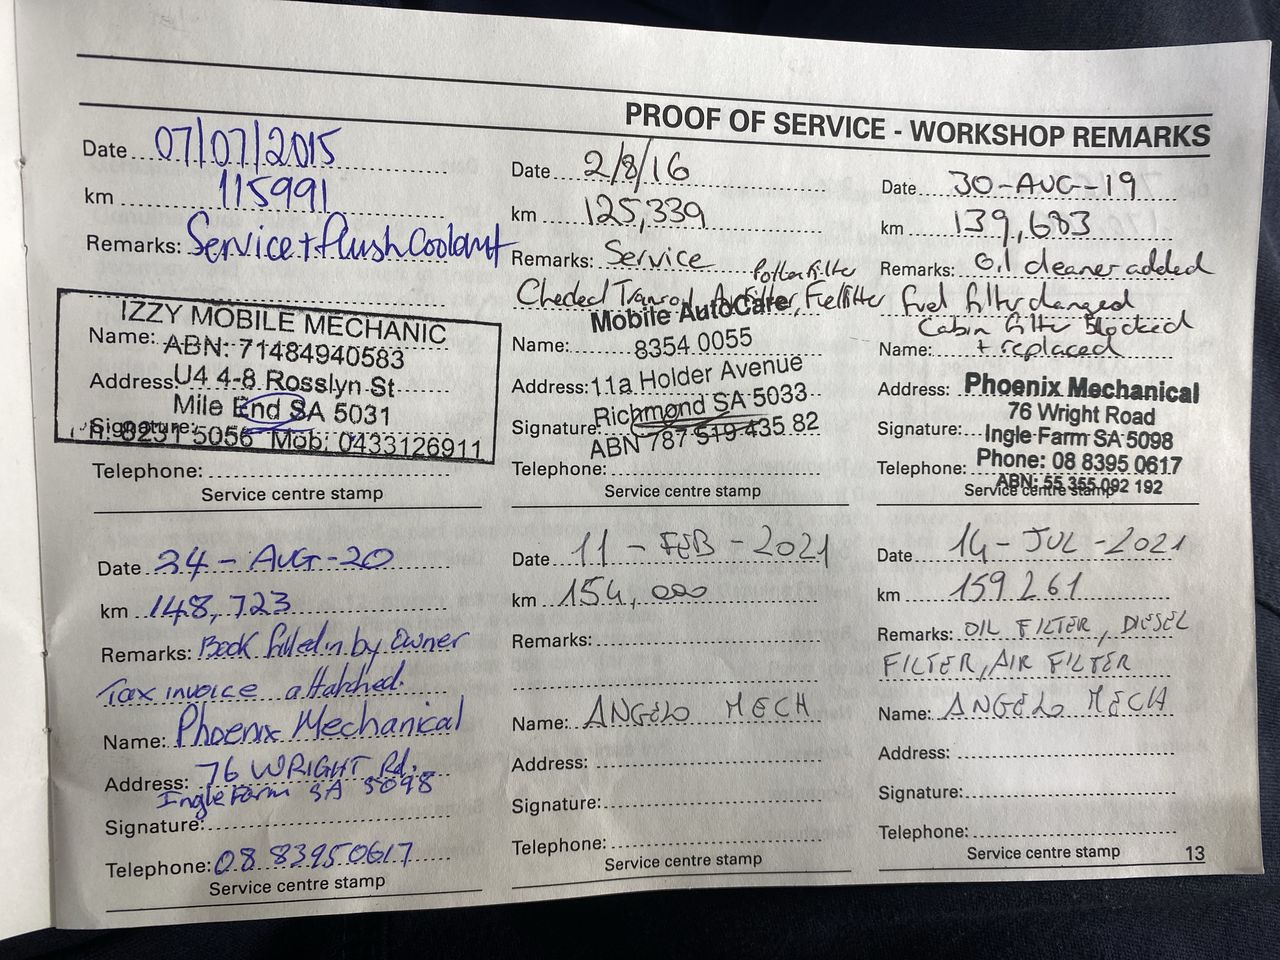 PROOF OF SERVICE - WORKSHOP REMARKS
Date 07/07/2015
km 115991
Remarks: Service + flush Coolant
IZZY MOBILE MECHANIC
Name: ABN: 71484940583
Address: U4 4-8 Rosslyn St
Mile End SA 5031
Signature: 8231 5056 Mob: 0433126911
Telephone:
Service centre stamp
Date 2/8/16
km 125,339
Remarks: Service
Filter
Mobile AutoCare
Name: 8354 0055
Address: 11a Holder Avenue
Richmond SA 5033
Signature: ABN 787 519 435 82
Telephone:
Service centre stamp
Date 30-AUG-19
km 139,683
Remarks: Oil cleaner added
fuel filter changed
Cabin filter Blocked
Name: + replaced
Address: Phoenix Mechanical
76 Wright Road
Signature: Ingle Farm SA 5098
Telephone: Phone: 08 8395 0617
ABN: 55 355 092 192
Service centre stamp
Date 24-AUG-20
km 148,723
Remarks: Book filled in by Owner
Tax invoice attatched.
Name: Phoenix Mechanical
Address: 76 WRIGHT Rd.
Ingle Farm SA 5098
Signature:
Telephone: 08 83950617
Service centre stamp
Date 11-FEB-2021
km 154,000
Remarks:
Name: ANGELO MECH
Address:
Signature:
Telephone:
Service centre stamp
Date 14-JUL-2021
km 159261
Remarks: OIL FILTER, DIESEL
FILTER, AIR FILTER
Name: ANGELO MECH
Address:
Signature:
Telephone:
Service centre stamp
13